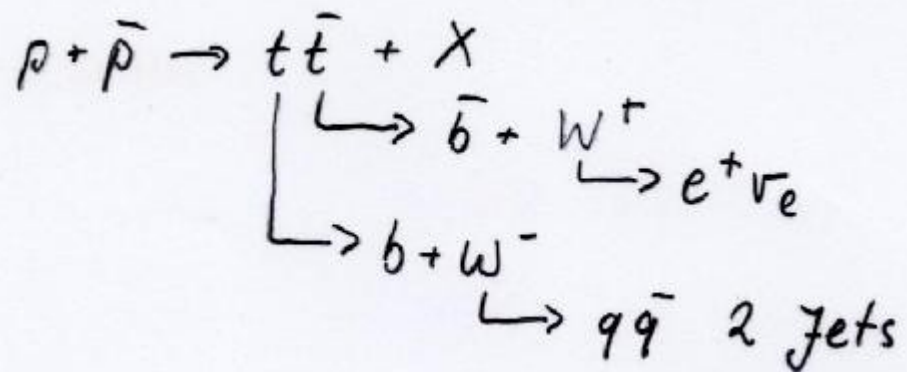 p + p̄ → t t̄ + X
↳ b̄ + W⁺
↳ e⁺ νₑ
↳ b + W⁻
↳ q q̄ 2 Jets